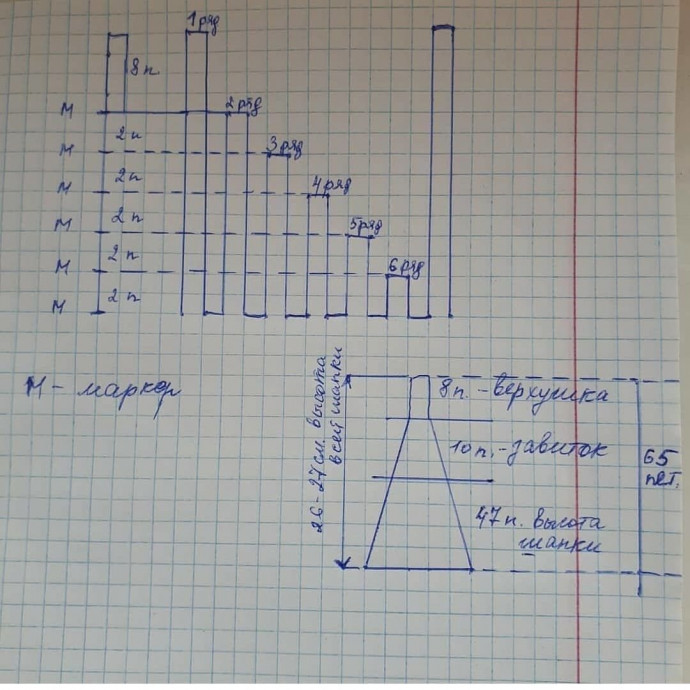 1 ряд
8 п
М
2 ряд
2 п
М
3 ряд
2 п
М
4 ряд
2 п
М
5 ряд
2 п
М
6 ряд
2 п
М
М - маркер
26-27 см. высота
всей шапки
8 п. - верхушка
10 п. - завиток
65
пет.
47 п. высота
шапки